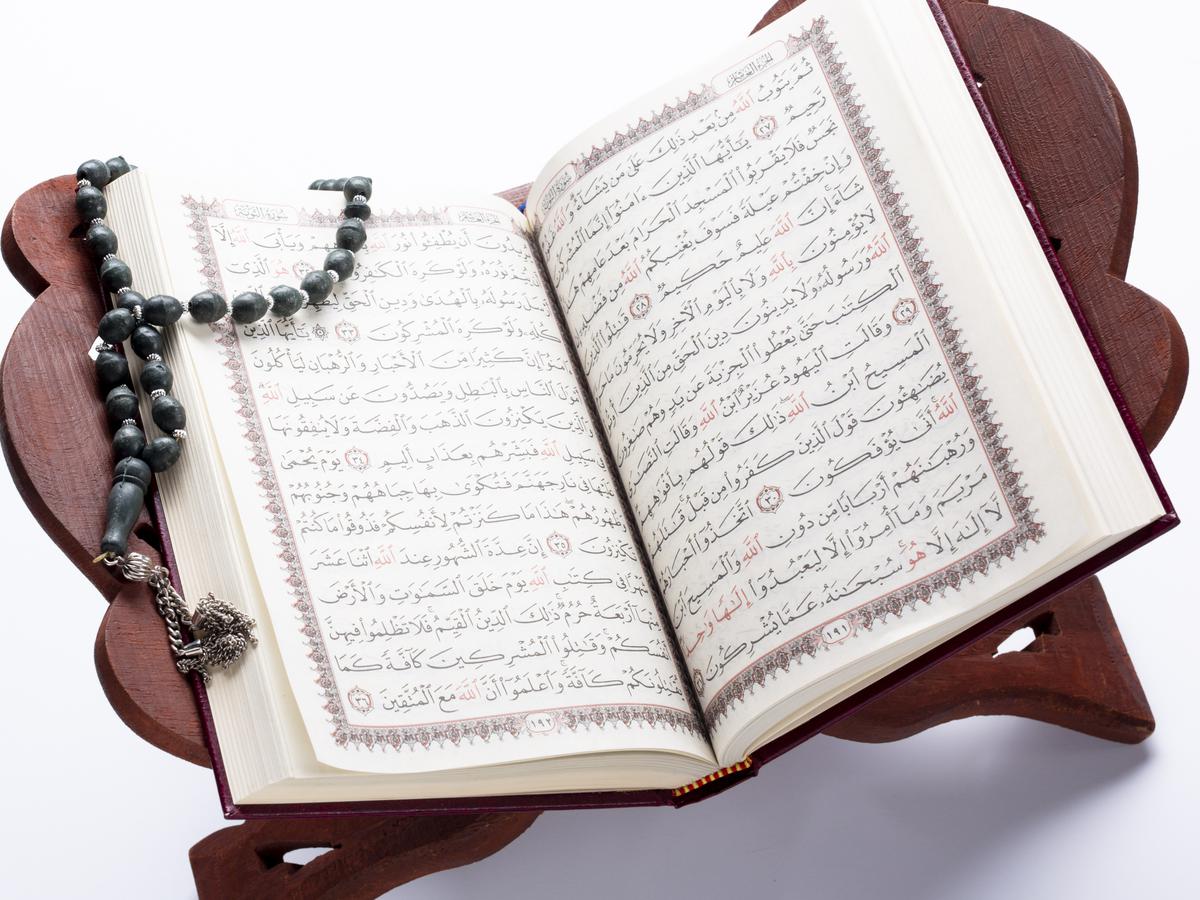 الجزء العاشر سورة التوبة
ثُمَّ يَتُوبُ ٱللَّهُ مِنۢ بَعْدِ ذَٰلِكَ عَلَىٰ مَن يَشَآءُ وَٱللَّهُ
رَّحِيمٌ ٢٧ يَـٰٓأَيُّهَا ٱلَّذِينَ ءَامَنُوٓا۟ إِنَّمَا ٱلْمُشْرِكُونَ
نَجَسٌ فَلَا يَقْرَبُوا۟ ٱلْمَسْجِدَ ٱلْحَرَامَ بَعْدَ عَامِهِمْ
وَإِنْ خِفْتُمْ عَيْلَةً فَسَوْفَ يُغْنِيكُمُ ٱللَّهُ مِن فَضْلِهِۦٓ
شَآءَ إِنَّ ٱللَّهَ عَلِيمٌ حَكِيمٌ ٢٨ قَـٰتِلُوا۟ ٱلَّذِينَ
لَا يُؤْمِنُونَ بِٱللَّهِ وَلَا بِٱلْيَوْمِ ٱلْـَٔاخِرِ وَلَا يُحَرِّمُونَ مَا
ٱللَّهُ وَرَسُولُهُۥ وَلَا يَدِينُونَ دِينَ ٱلْحَقِّ مِنَ ٱلَّذِينَ أُوتُوا۟
ٱلْكِتَـٰبَ حَتَّىٰ يُعْطُوا۟ ٱلْجِزْيَةَ عَن يَدٍ وَهُمْ صَـٰغِرُونَ
٢٩ وَقَالَتِ ٱلْيَهُودُ عُزَيْرٌ ٱبْنُ ٱللَّهِ وَقَالَتِ ٱلنَّصَـٰرَى
ٱلْمَسِيحُ ٱبْنُ ٱللَّهِ ذَٰلِكَ قَوْلُهُم بِأَفْوَٰهِهِمْ
يُضَـٰهِـُٔونَ قَوْلَ ٱلَّذِينَ كَفَرُوا۟ مِن قَبْلُ قَـٰتَلَهُمُ
ٱللَّهُ أَنَّىٰ يُؤْفَكُونَ ٣٠ ٱتَّخَذُوٓا۟ أَحْبَارَهُمْ
وَرُهْبَـٰنَهُمْ أَرْبَابًا مِّن دُونِ ٱللَّهِ وَٱلْمَسِيحَ ٱبْنَ
مَرْيَمَ وَمَآ أُمِرُوٓا۟ إِلَّا لِيَعْبُدُوٓا۟ إِلَـٰهًا وَٰحِدًا
لَّآ إِلَـٰهَ إِلَّا هُوَ سُبْحَـٰنَهُۥ عَمَّا يُشْرِكُونَ
١٩١
الجزء العاشر سورة التوبة
يُرِيدُونَ أَن يُطْفِـُٔوا۟ نُورَ ٱللَّهِ وَيَأْبَى ٱللَّهُ إِلَّآ
أَن يُتِمَّ نُورَهُۥ وَلَوْ كَرِهَ ٱلْكَـٰفِرُونَ هُوَ ٱلَّذِىٓ
أَرْسَلَ رَسُولَهُۥ بِٱلْهُدَىٰ وَدِينِ ٱلْحَقِّ
كُلِّهِۦ وَلَوْ كَرِهَ ٱلْمُشْرِكُونَ ٣٣ يَـٰٓأَيُّهَا ٱلَّذِينَ
ءَامَنُوٓا۟ إِنَّ كَثِيرًا مِّنَ ٱلْأَحْبَارِ وَٱلرُّهْبَانِ لَيَأْكُلُونَ
أَمْوَٰلَ ٱلنَّاسِ بِٱلْبَـٰطِلِ وَيَصُدُّونَ عَن سَبِيلِ ٱللَّهِ
وَٱلَّذِينَ يَكْنِزُونَ ٱلذَّهَبَ وَٱلْفِضَّةَ وَلَا يُنفِقُونَهَا
فِى سَبِيلِ ٱللَّهِ فَبَشِّرْهُم بِعَذَابٍ أَلِيمٍ ٣٤ يَوْمَ يُحْمَىٰ
عَلَيْهَا فِى نَارِ جَهَنَّمَ فَتُكْوَىٰ بِهَا جِبَاهُهُمْ وَجُنُوبُهُمْ
وَظُهُورُهُمْ هَـٰذَا مَا كَنَزْتُمْ لِأَنفُسِكُمْ فَذُوقُوا۟ مَا كُنتُمْ
تَكْنِزُونَ ٣٥ إِنَّ عِدَّةَ ٱلشُّهُورِ عِندَ ٱللَّهِ ٱثْنَا عَشَرَ
شَهْرًا فِى كِتَـٰبِ ٱللَّهِ يَوْمَ خَلَقَ ٱلسَّمَـٰوَٰتِ وَٱلْأَرْضَ
مِنْهَآ أَرْبَعَةٌ حُرُمٌ ذَٰلِكَ ٱلدِّينُ ٱلْقَيِّمُ فَلَا تَظْلِمُوا۟ فِيهِنَّ
أَنفُسَكُمْ وَقَـٰتِلُوا۟ ٱلْمُشْرِكِينَ كَآفَّةً كَمَا
يُقَـٰتِلُونَكُمْ كَآفَّةً وَٱعْلَمُوٓا۟ أَنَّ ٱللَّهَ مَعَ ٱلْمُتَّقِينَ ٣٦
١٩٢